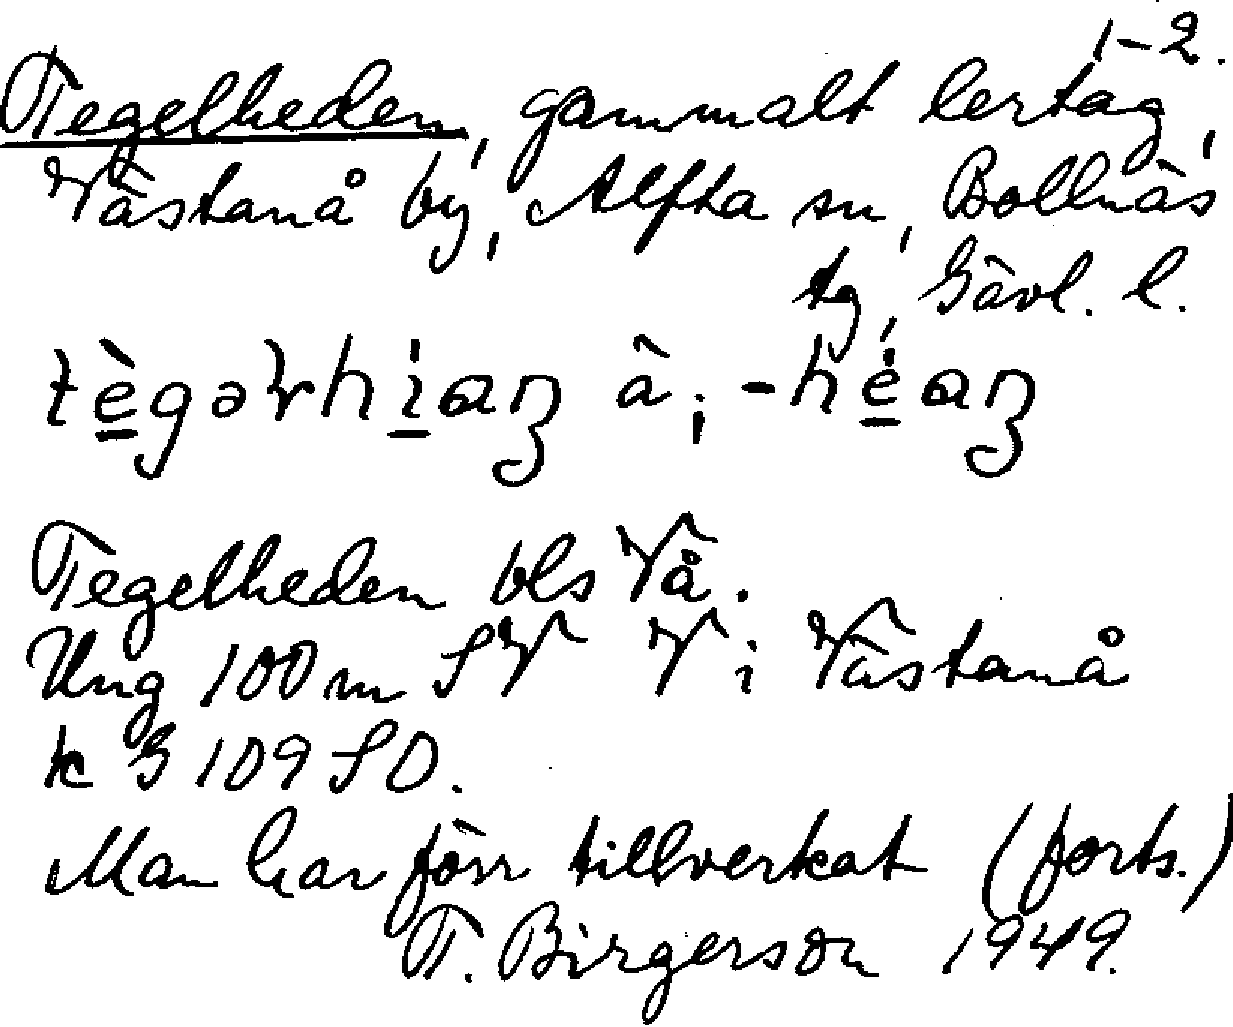 1-2.
Tegelheden, gammalt lertag,
Västanå by, Alfta sn, Bollnäs
tg, Gävl. l.
Tegelheden bls Vå.
Ung 100 m SV V i Västanå
k G 109 SO.
Man har förr tillverkat (forts.)
T. Birgerson 1949.